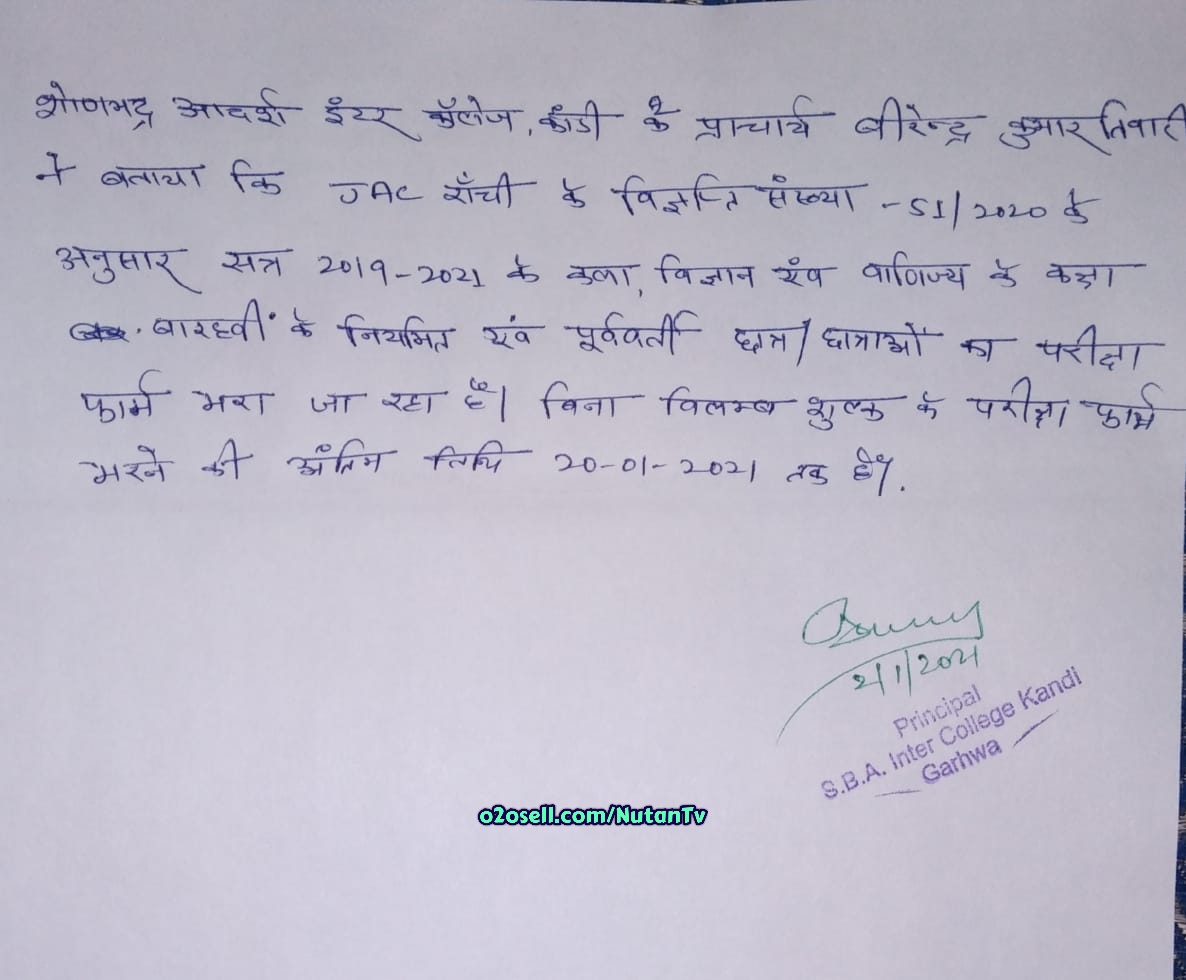 शोणभद्र आदर्श इंटर कॉलेज, कांडी के प्राचार्य बीरेन्द्र कुमार तिवारी
ने बताया कि JAC राँची के विज्ञप्ति संख्या - 51/2020 के
अनुसार सत्र 2019-2021 के कला, विज्ञान एंव वाणिज्य के कक्षा
बारहवीं के नियमित एवं पूर्ववर्ती छात्र/छात्राओं का परीक्षा
फार्म भरा जा रहा है। बिना विलम्ब शुल्क के परीक्षा फार्म
भरने की अंतिम तिथि 20-01-2021 तक है।
2/1/2021
Principal
S.B.A. Inter College Kandi
Garhwa
o2osell.com/NutanTv